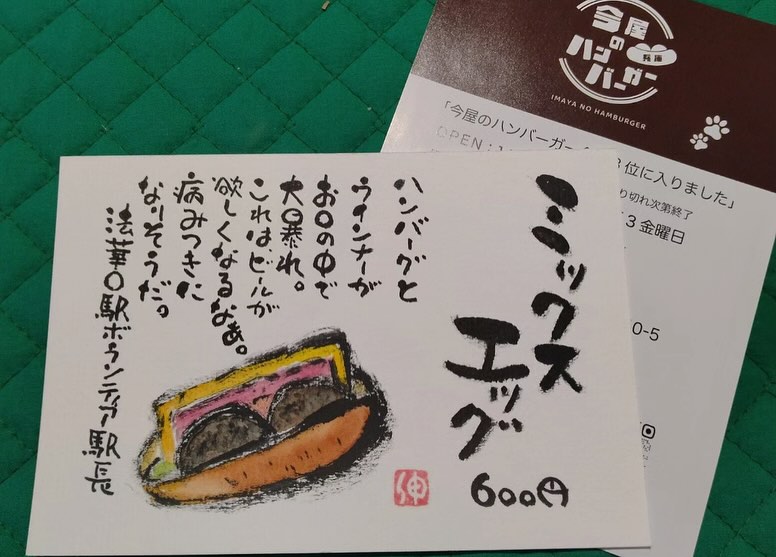 ミックス
エッグ
600円
ハンバーグと
ウインナーが
お口の中で
大暴れ。
これは、ビールが
欲しくなるなぁ。
病みつきに
なりそうだ。
法華口駅ボランティア駅長
伸
今屋
の
ハンバーガー
兵庫
IMAYA NO HAMBURGER
「今屋のハンバーガー
位に入りました」
OPEN:1
り切れ次第終了
3金曜日
0-5